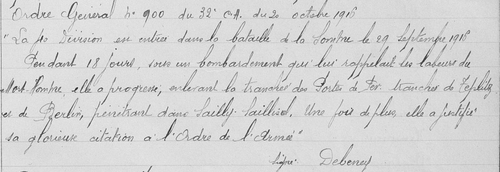 Ordre Général N° 900 du 32e C.A. du 20 octobre 1916
"La 40e Division est entrée dans la bataille de la Somme le 29 Septembre 1916
Pendant 18 jours, sous un bombardement qui lui rappelait les labeurs du
Mort-Homme, elle a progressé, enlevant la tranchée des Portes de Fer, tranchée de Teplitz
et de Berlin, pénétrant dans Sailly-Saillisel. Une fois de plus, elle a justifié
sa glorieuse citation à l'Ordre de l'Armée"
Signé: Debeney